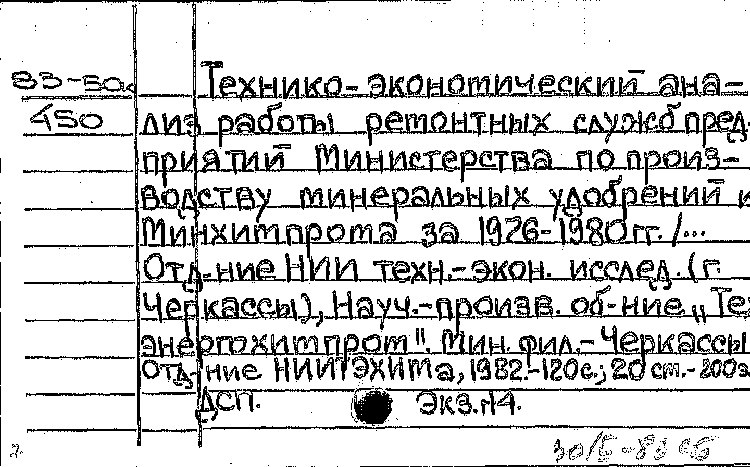 83-30к
450
Технико-экономический ана-
лиз работы ремонтных служб пред-
приятий Министерства по произ-
водству минеральных удобрений и
Минхимпрома за 1976-1980гг. /...
Отд-ние НИИ техн.-экон. исслед. (г.
Черкассы), Науч.-произв. об-ние „Тех
энергохимпром". Мин. фил.- Черкассы
Отд-ние НИИТЭХИМа, 1982.-120с.; 20 см.-200э
ДСП. Экз.№4.
30/5-83 СБ